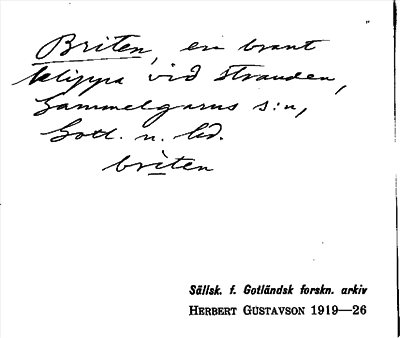 Briten, en brant
klippa vid stranden,
Gammelgarns s:n,
Gotl. n. hd.
briten
Sällsk. f. Gotländsk forskn. arkiv
HERBERT GUSTAVSON 1919—26